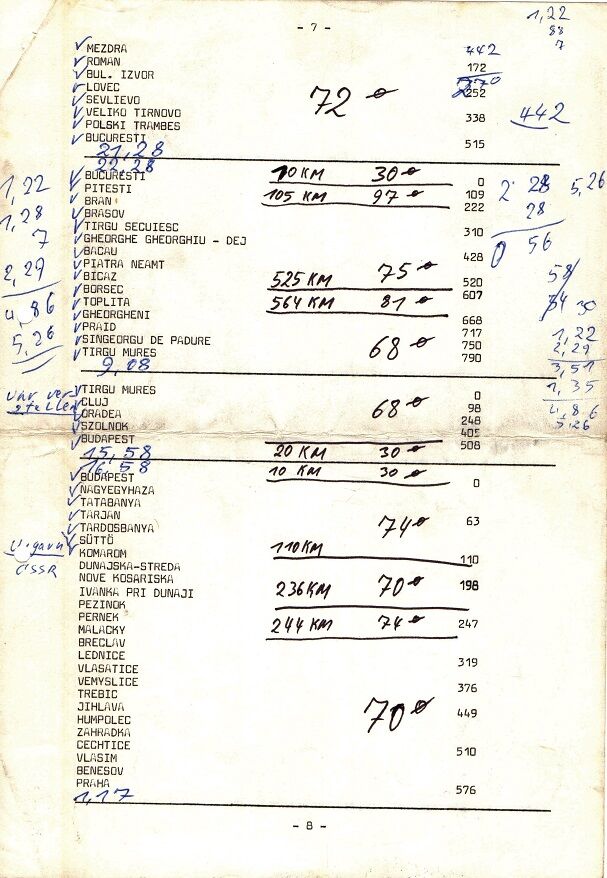 - 7 -
1,22
88
7
MEZDRA 442
ROMAN 172
BUL. IZVOR 270
LOVEC 252
SEVLIEVO 72
VELIKO TIRNOVO 338 442
POLSKI TRAMBES
BUCURESTI 515
21,28
22,28
BUCURESTI 10 KM 30 0
PITESTI 105 KM 97 109
BRAN 222
BRASOV
TIRGU SECUIESC 310
GHEORGHE GHEORGHIU - DEJ
BACAU 428
PIATRA NEAMT
BICAZ 525 KM 75 520
BORSEC 607
TOPLITA 564 KM 81
GHEORGHENI 668
PRAID 717
SINGEORGU DE PADURE 68 750
TIRGU MURES 790
9,08
1,22
1,28
7
2,29
4,86
5,26
2 28 5,26
28
0 56
58
54 30
1,22
2,29
3,51
1,35
4,86
5,26
Uhr ver-
stellen
TIRGU MURES 0
CLUJ 68 98
ORADEA 248
SZOLNOK 405
BUDAPEST 508
15,58 20 KM 30
16,58
BUDAPEST 10 KM 30 0
NAGYEGYHAZA
TATABANYA
TARJAN 63
TARDOSBANYA 74
SÜTTÖ
KOMAROM 110 KM 110
Ungarn
CSSR
DUNAJSKA-STREDA
NOVE KOSARISKA
IVANKA PRI DUNAJI 236 KM 70 198
PEZINOK
PERNEK
MALACKY 244 KM 74 247
BRECLAV
LEDNICE
VLASATICE 319
VEMYSLICE
TREBIC 376
JIHLAVA
HUMPOLEC 70 449
ZAHRADKA
CECHTICE
VLASIM 510
BENESOV
PRAHA 576
1,17
- 8 -